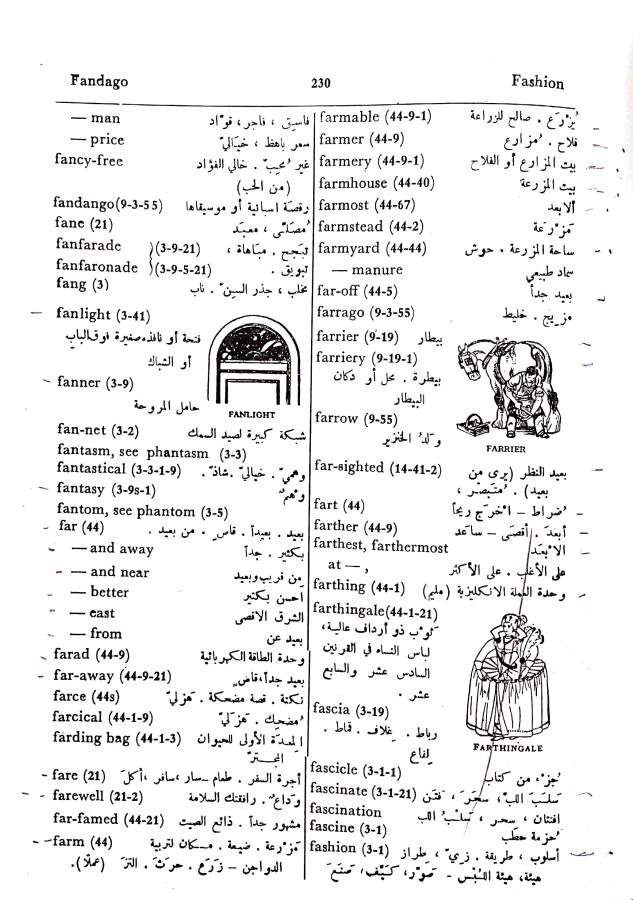 Fandago 230 Fashion
— man فاسق ، فاجر ، قوّاد
— price سعر باهظ ، خياليّ
fancy-free غير مُحِبّ . خالي الفؤاد
(من الحب)
fandango(9-3-55) رقصة اسبانية أو موسيقاها
fane (21) مُصلّى ، معبد
fanfarade )(3-9-21) تبجح . مباهاة ،
fanfaronade )(3-9-5-21) تبويق .
fang (3) مخلب ، جذر السن . ناب
fanlight (3-41)
فتحة أو نافذه صغيرة فوق الباب
أو الشباك
FANLIGHT
fanner (3-9)
حامل المروحة
fan-net (3-2) شبكة كبيرة لصيد السمك
fantasm, see phantasm (3-3)
fantastical (3-3-1-9) وهميّ . خياليّ . شاذّ .
fantasy (3-9s-1) وهمٌ
fantom, see phantom (3-5)
far (44) بعيد . بعيداً . قاصٍ . من بعيد .
— and away بكثير . جداً
— and near من قريب وبعيد
— better أحسن بكثير
— east الشرق الاقصى
— from بعيد عن
farad (44-9) وحدة الطاقة الكهربائية
far-away (44-9-21) بعيد جداً، قاصٍ
farce (44s) نكتة . قصة مضحكة . هزليّ
farcical (44-1-9) مُضحك . هزليّ
farding bag (44-1-3) المعدة الأولى للحيوان
المجترّ
fare (21) أجرة السفر . طعام - سار ، سافر ، أكل
farewell (21-2) وداعٌ . رافقتك السلامة
far-famed (44-21) مشهور جداً . ذائع الصيت
farm (44) مزرعة . ضيعة . مسكان لتربية
الدواجن – زرع . حرث . التز (عملًا).
farmable (44-9-1) يُزرع . صالح للزراعة
farmer (44-9) فلاح . مزارع
farmery (44-9-1) بيت المزارع أو الفلاح
farmhouse (44-40) بيت المزرعة
farmost (44-67) الابعد
farmstead (44-2) مزرعة
farmyard (44-44) ساحة المزرعة . حوش
— manure سماد طبيعي
far-off (44-5) بعيد جداً
farrago (9-3-55) مزيج . خليط
farrier (9-19) بيطار
farriery (9-19-1)
بيطرة . محل أو دكان
البيطار
FARRIER
farrow (9-55)
ولد الخنزير
far-sighted (14-41-2) بعيد النظر (يرى من
بعيد) . متبصر ،
fart (44) ضراط – اخرج ريحاً
farther (44-9) أبعد . أقصى – ساعد
farthest, farthermost الابعد
at — , على الأغلب . على الأكثر
farthing (44-1) وحدة العملة الانكليزية (مليم)
farthingale(44-1-21)
ثوب ذو أرداف عالية،
لباس النساء في القرنين
السادس عشر والسابع
عشر .
FARTHINGALE
fascia (3-19)
رباط . غلاف . قماط .
لفاع
fascicle (3-1-1) جزء من كتاب
fascinate (3-1-21) سلب اللب ، سحر ، فتن
fascination افتنان ، سحر ، سلب اللب
fascine (3-1) حزمة حطب
fashion (3-1) أسلوب ، طريقة . زيّ ، طراز
هيئة، هيئة اللبس – صوّر، كيّف، صنع